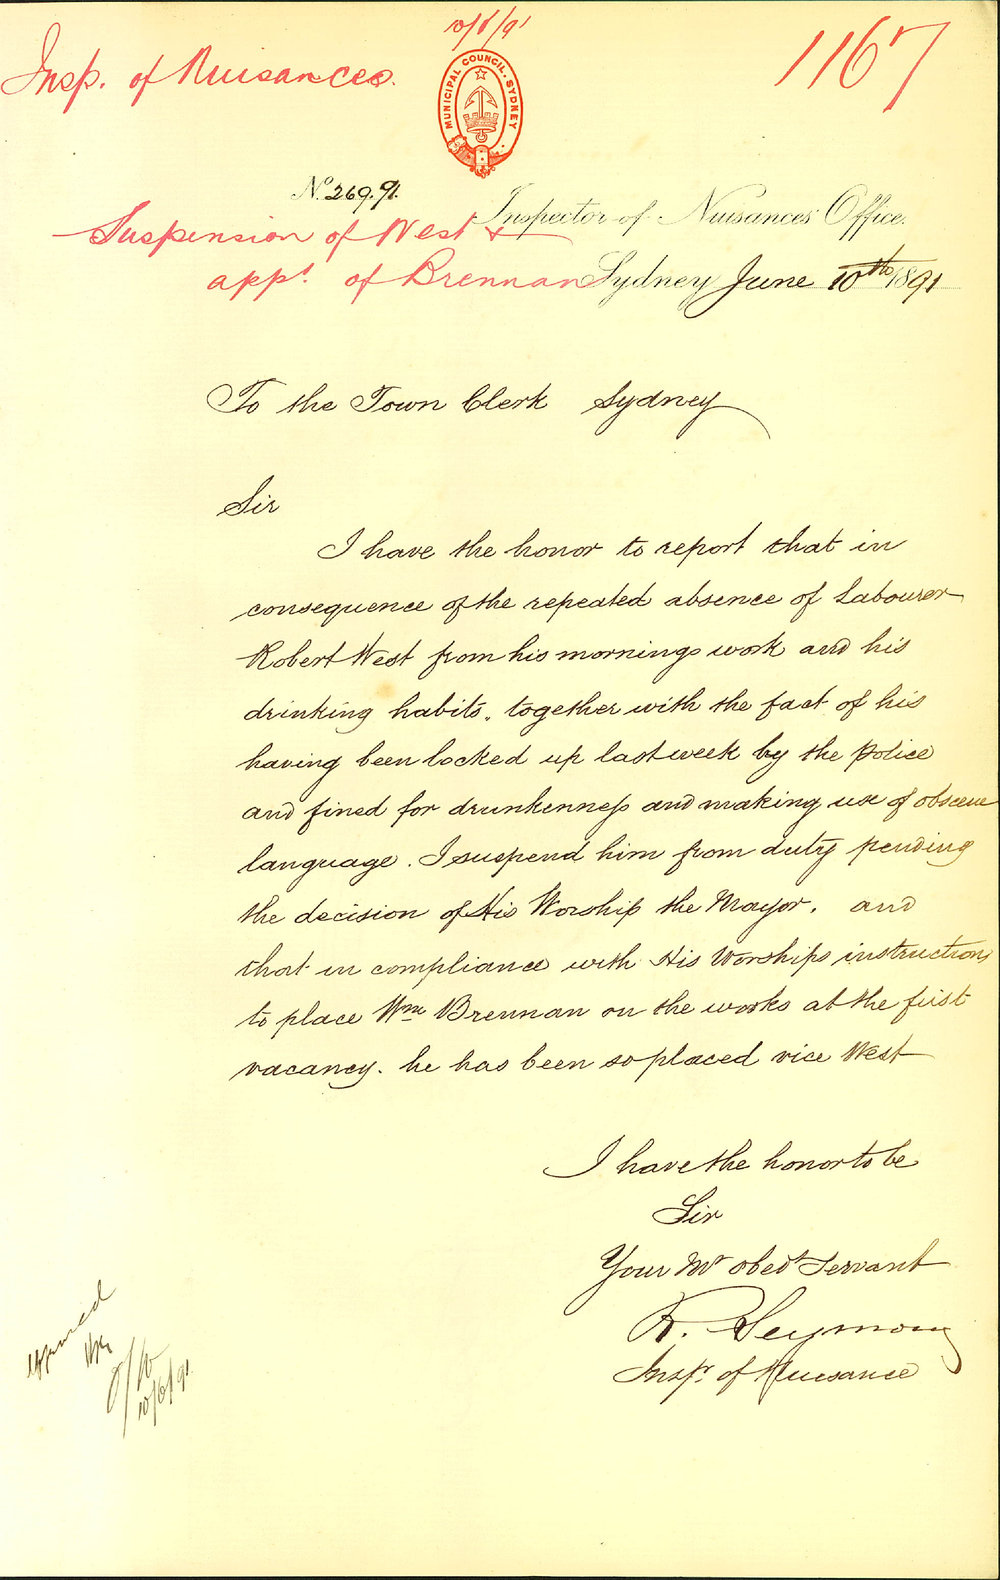 10/6/91
Insp. of Nuisances.
1167
MUNICIPAL COUNCIL. SYDNEY
No. 269.91.
Inspector of Nuisances Office.
Suspension of West &
appt. of Brennan
Sydney June 10th 1891
To the Town Clerk Sydney
Sir
I have the honor to report that in
consequence of the repeated absence of Labourer
Robert West from his mornings work and his
drinking habits, together with the fact of his
having been locked up last week by the Police
and fined for drunkenness and making use of obscene
language. I suspend him from duty pending
the decision of His Worship the Mayor. and
that in compliance with His Worships instructions
to place Wm Brennan on the works at the first
vacancy. he has been so placed vice West
I have the honor to be
Sir
Your Mt obedt Servant
R. Seymour
Inspr. of Nuisance
10/6/91